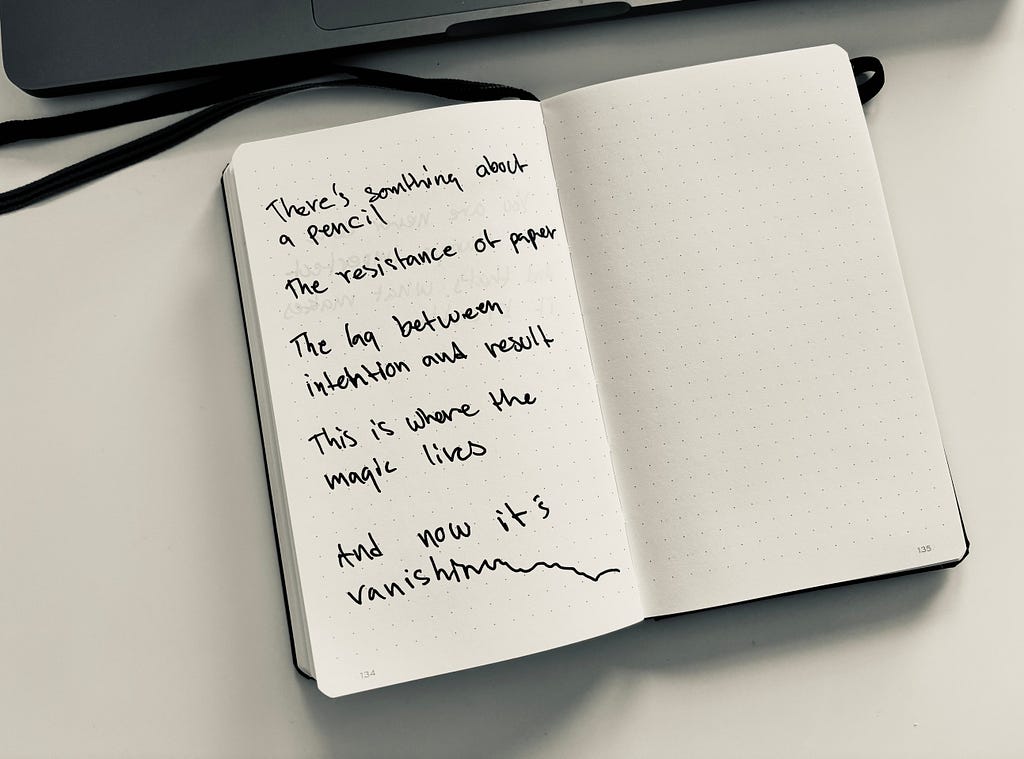 There's somthing about
a pencil
The resistance of paper
The lag between
intention and result
This is where the
magic lives
And now it's
vanishin
134
135